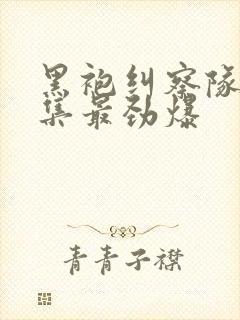 黑袍纠察队
集最劲爆
青青子襟